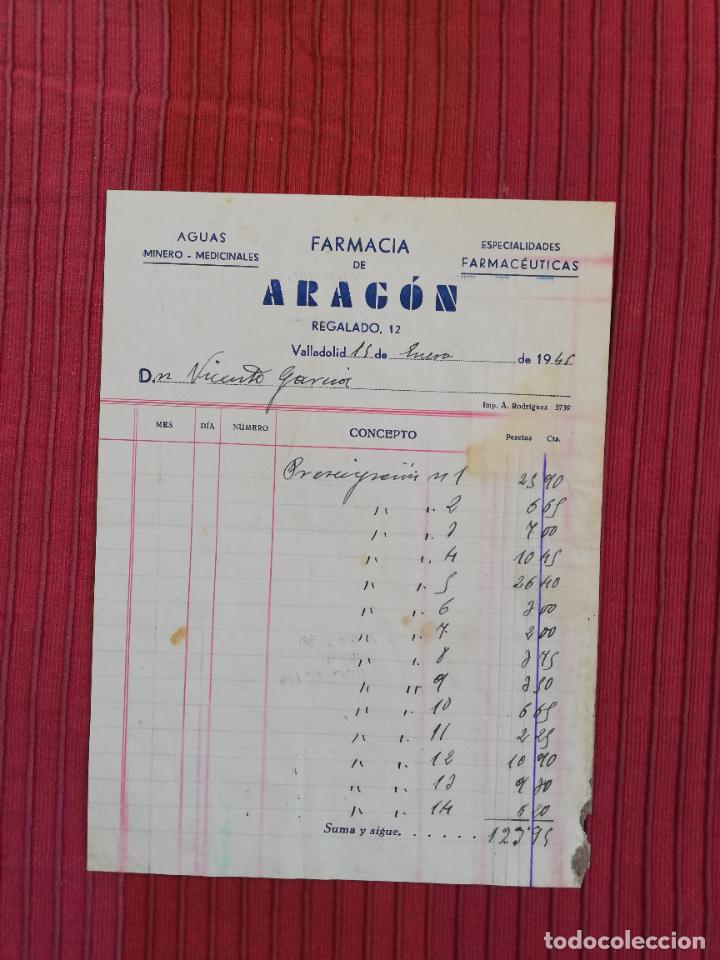 AGUAS
MINERO - MEDICINALES
FARMACIA
DE
ARAGÓN
REGALADO, 12
ESPECIALIDADES
FARMACÉUTICAS
Valladolid 15 de Enero de 1945
Dn Vicente Garcia
Imp. A. Rodríguez 5739
MES DÍA NÚMERO CONCEPTO Pesetas Cts.
Prescripción n 1 25 90
" " 2 6 65
" " 3 7 00
" " 4 10 45
" " 5 26 40
" " 6 3 00
" " 7 2 00
" " 8 3 75
" " 9 3 50
" " 10 6 65
" " 11 2 25
" " 12 10 90
" " 13 9 30
" " 14 6 20
Suma y sigue. . . . . . 123 95
todocoleccion
todocoleccion.net